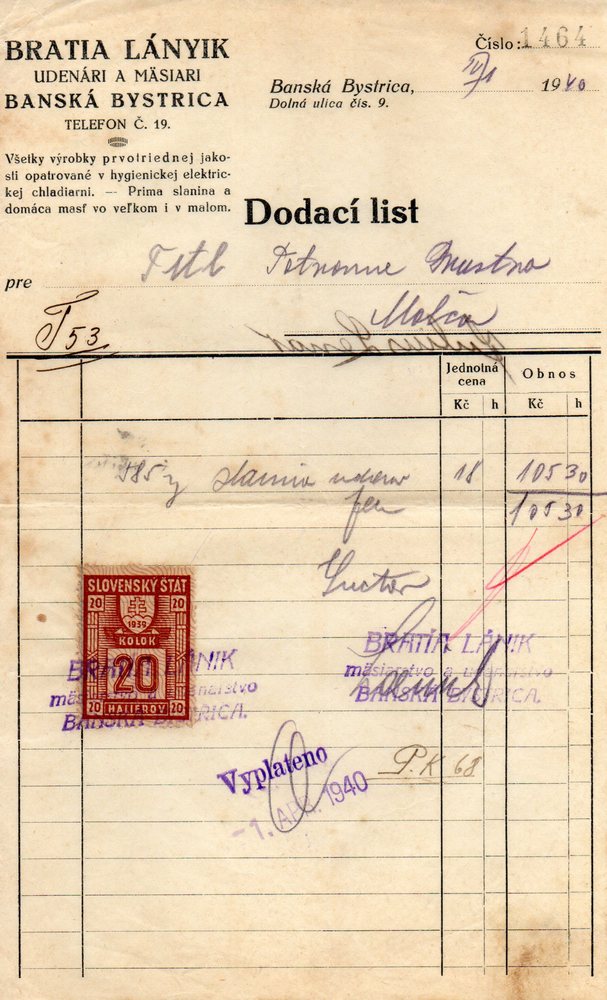 BRATIA LÁNYIK
UDENÁRI A MÄSIARI
BANSKÁ BYSTRICA
TELEFON Č. 19.
Všetky výrobky prvotriednej jako-
sti opatrované v hygienickej elektric-
kej chladiarni. — Prima slanina a
domáca masť vo veľkom i v malom.
Číslo: 1464
Banská Bystrica, IV/1 1940
Dolná ulica čís. 9.
Dodací list
pre
T 53
Jednotná cena Obnos
Kč h Kč h
585 18 10530
10530
SLOVENSKÝ ŠTÁT
20 20
1939
KOLOK
20
20 HALIEROV 20
BRATIA LÁNIK
BANSKÁ BYSTRICA.
BRATIA LÁNIK
mäsiarstvo a udenárstvo
BANSKÁ BYSTRICA.
Vyplateno
-1. APR. 1940
P.K 68